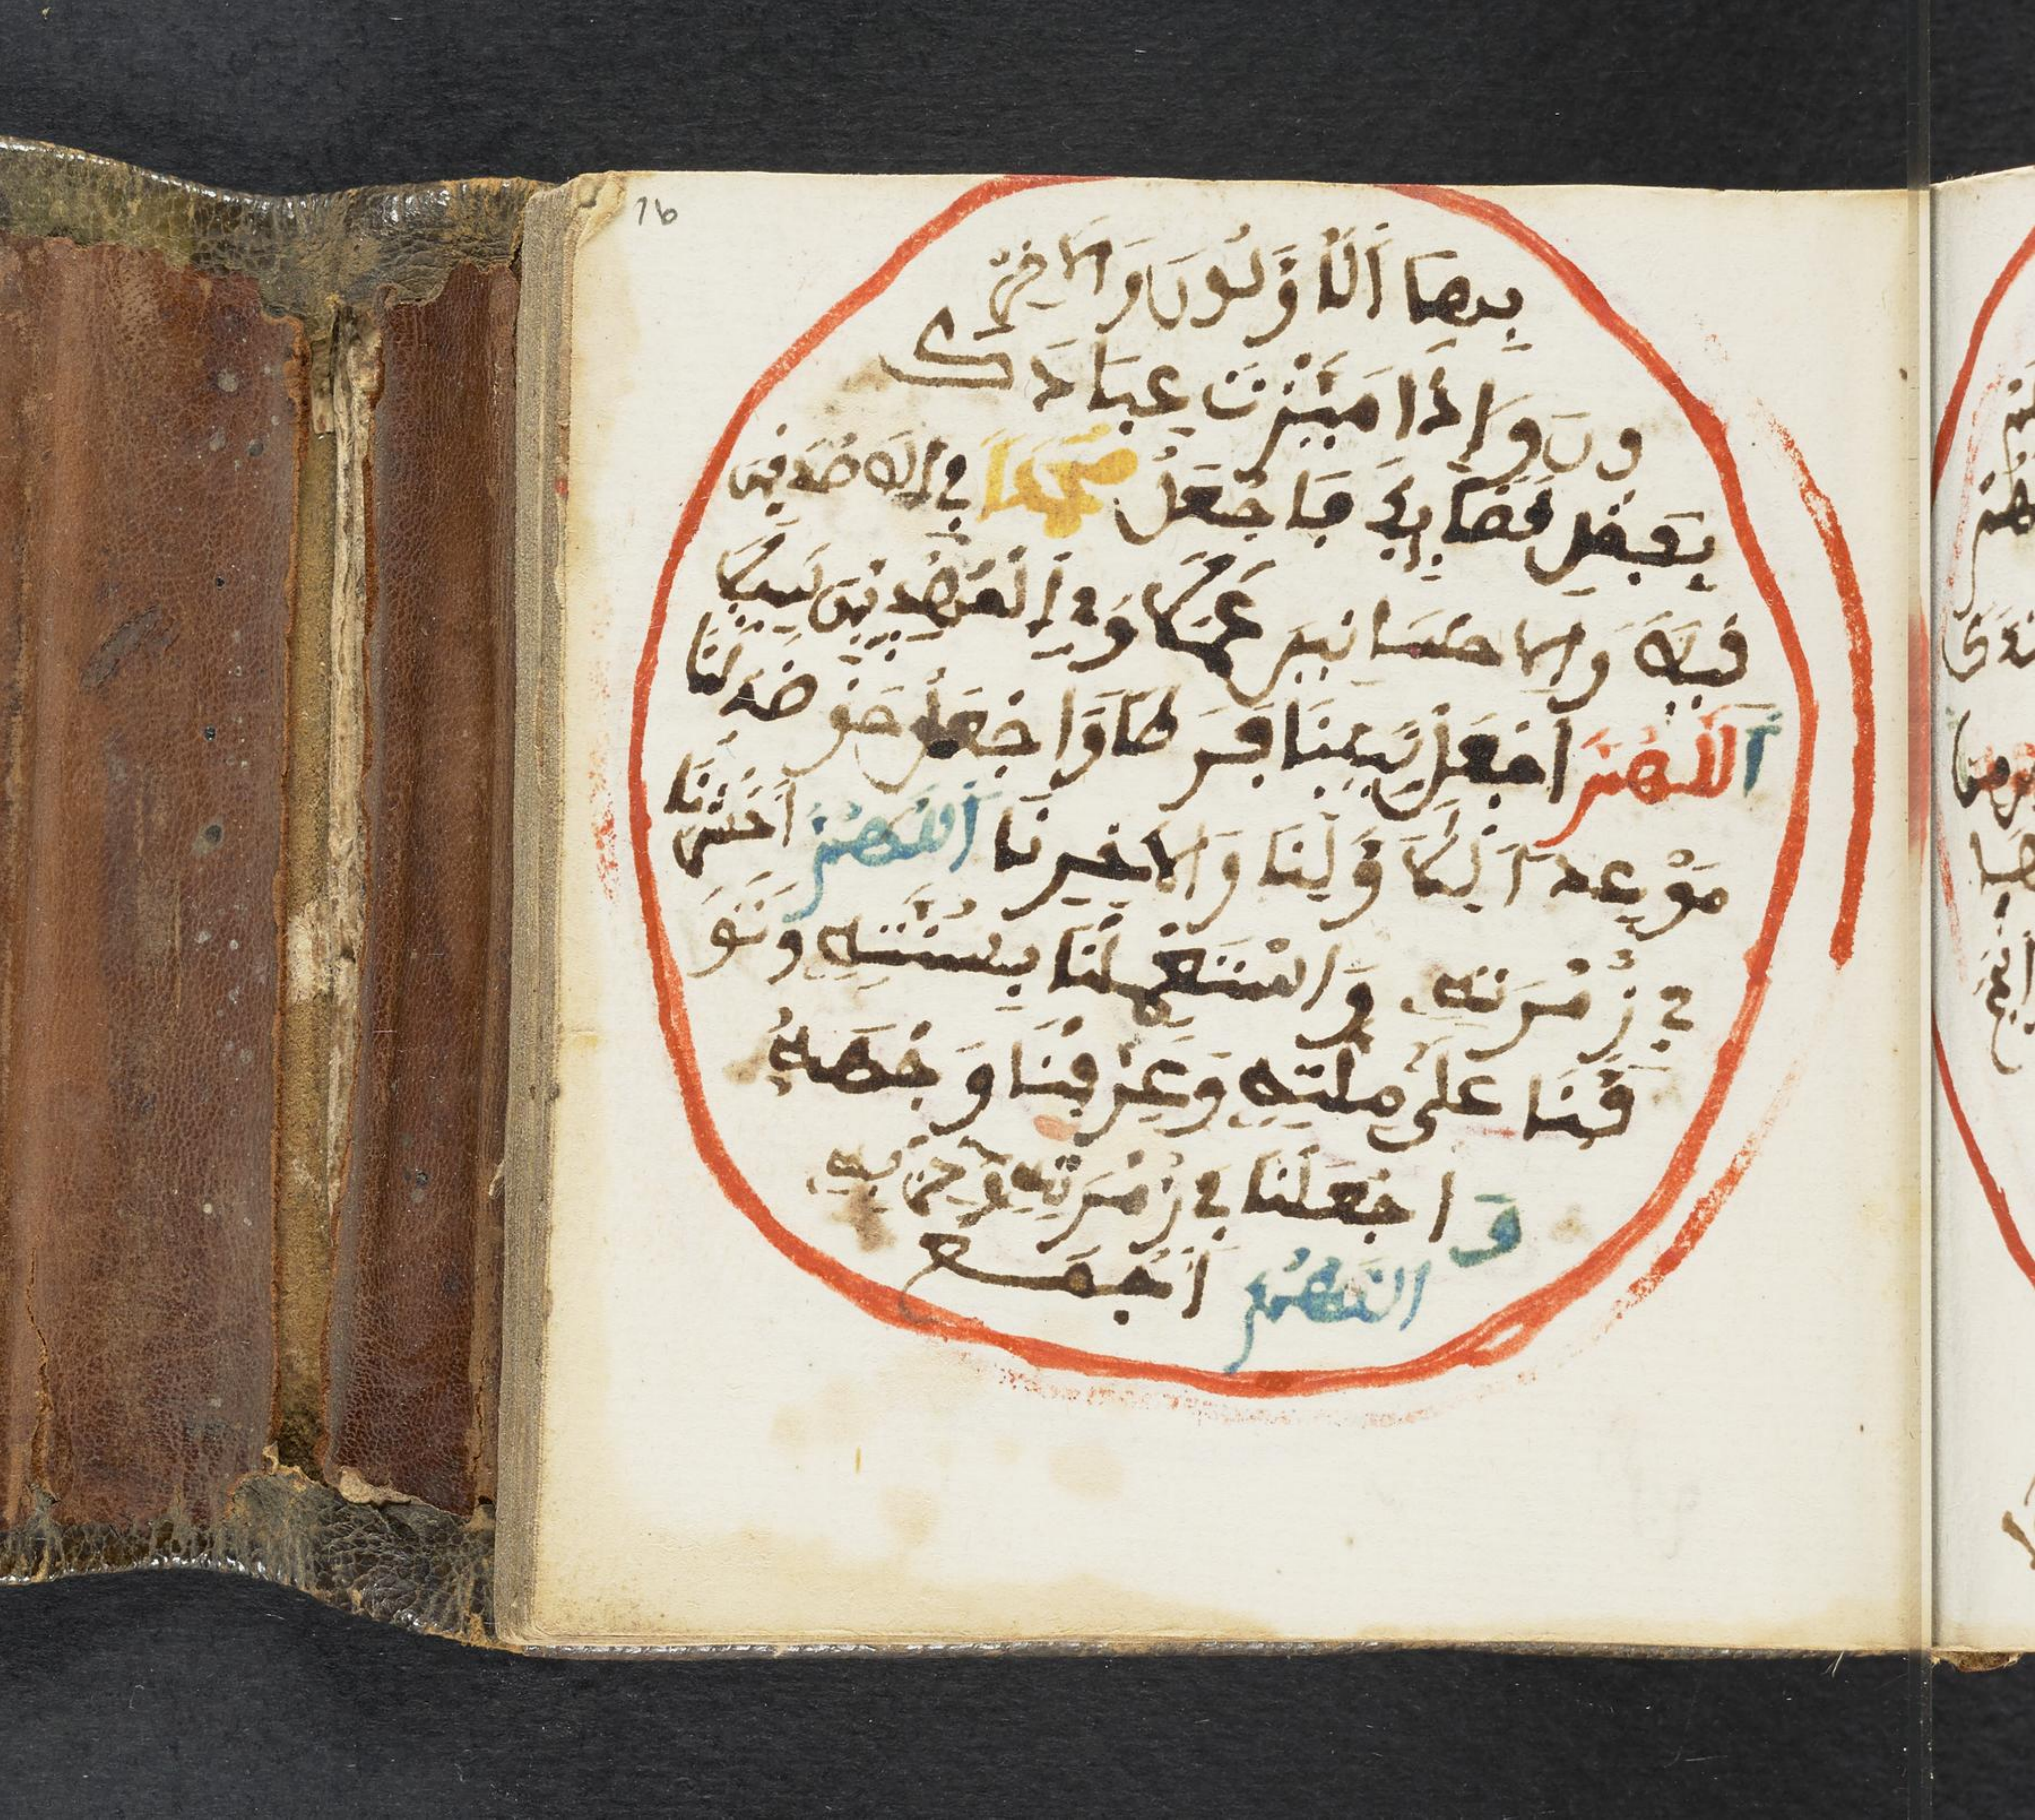 16
بِهَا اَلْاَوَّلُونَ وَالاخِرُ
ونَ وَاِذَا مَيَّزْتَ عِبَادَكَ
بِفَصْلِ قَضَايِكَ فَاجْعَلْ مُحَمَّدًا فِي الَاصْدَفِينَ
فِيلَا وَالاحْسَنِينَ عَمَلًا وَفِي اَلْمَهْدِيِّينَ سَبِيلًا
اَللَّهُمَّ اجْعَلْ نَبِيَّنَا لَنَا فَرَطًا وَاجْعَلْ حَوْضَهُ لَنَا
مَوْعِدًا لِاَوَّلِنَا وَالاخِرِنَا اَللَّهُمَّ احْشُرْنَا
فِي زُمْرَتِهِ وَاسْتَعْمِلْنَا بِسُنَّتِهِ وَتَوَ
فَّنَا عَلَى مِلَّتِهِ وَعَرِّفْنَا وَجْهَهُ
وَاجْعَلْنَا فِي زُمْرَتِهِ وَحِزْبِهِ
اللَّهُمَّ اَجْمَع